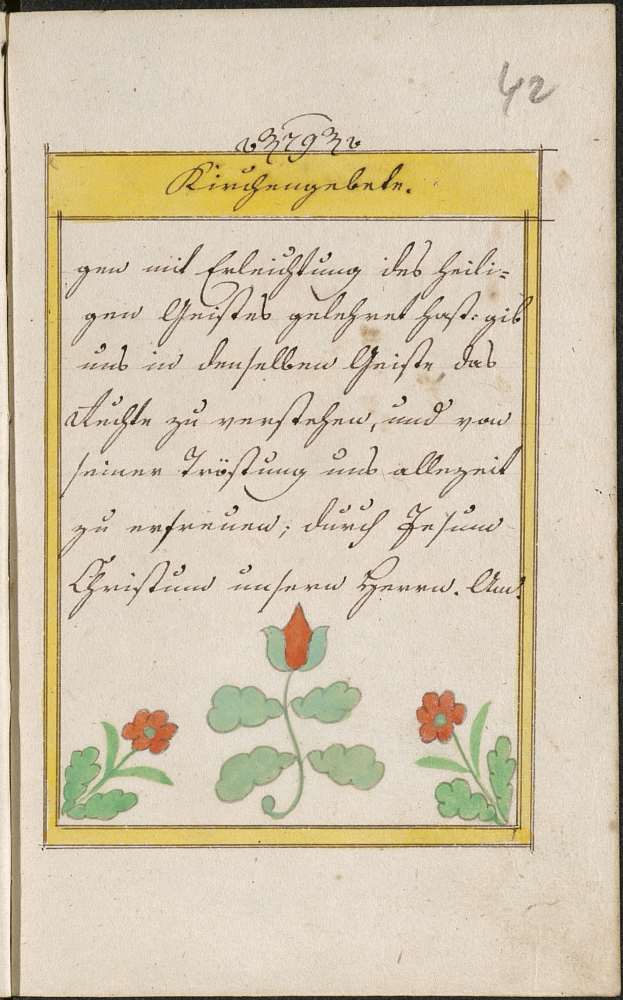 42
79
Kirchengebete.
gen mit Erleichtung des heili-
gen Geistes gelehret hast: gib
uns in denselben Geiste das
Rechte zu verstehen, und von
seiner Tröstung uns allezeit
zu erfreuen; durch Jesum
Christum unsern Herrn. Am: